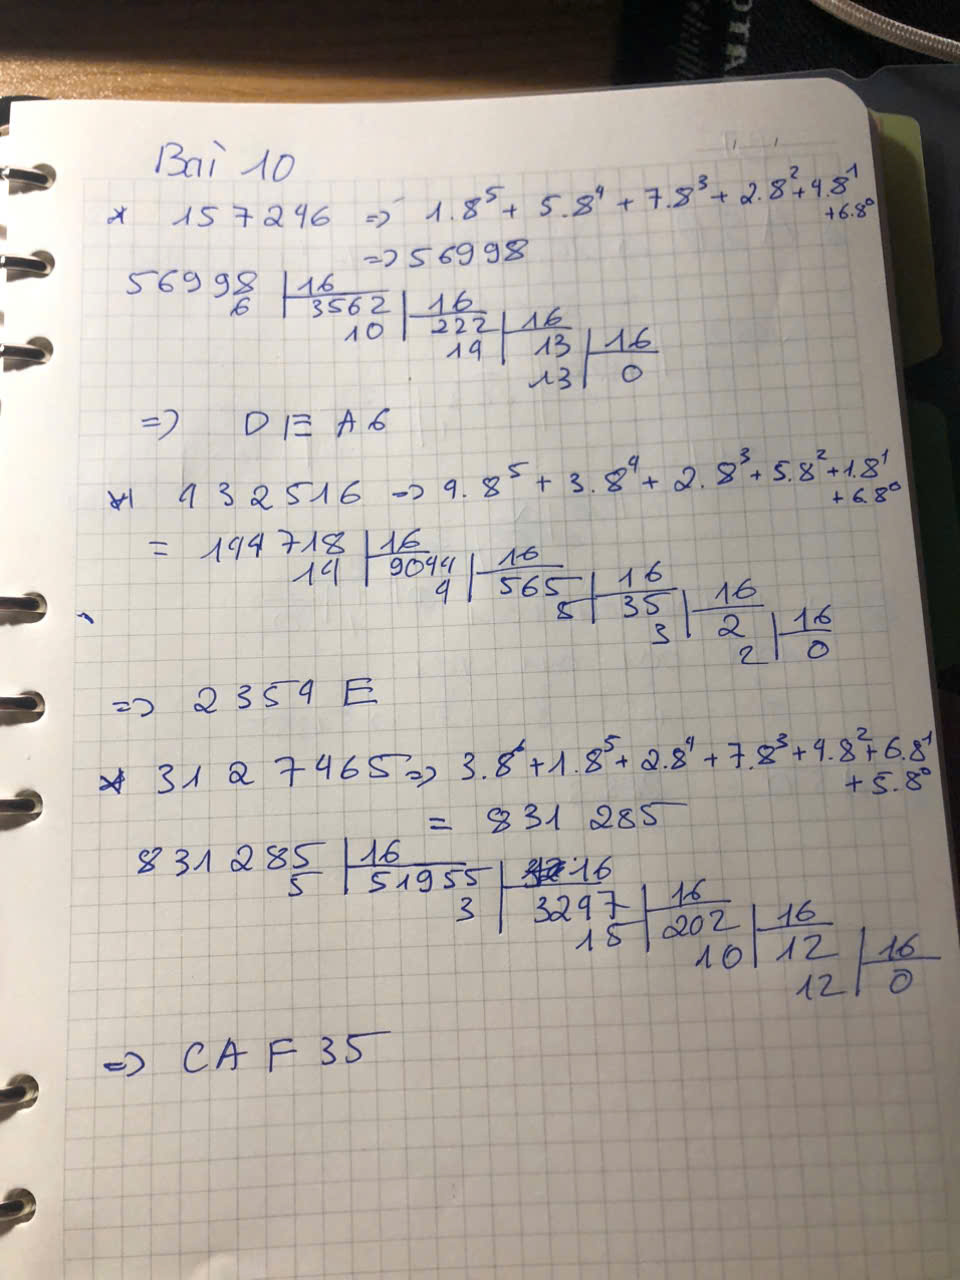 Bài 10
* 157246 => 1.8⁵ + 5.8⁴ + 7.8³ + 2.8² + 4.8¹
+6.8⁰
=> 56998
56998 | 16
6 | 3562 | 16
10 | 222 | 16
14 | 13 | 16
13 | 0
=> DEA6
* 432516 => 4.8⁵ + 3.8⁴ + 2.8³ + 5.8² + 1.8¹
+ 6.8⁰
= 144718 | 16
14 | 9044 | 16
4 | 565 | 16
5 | 35 | 16
3 | 2 | 16
2 | 0
=> 2354E
* 3127465 => 3.8⁶ + 1.8⁵ + 2.8⁴ + 7.8³ + 4.8² + 6.8¹
+ 5.8⁰
= 831 285
831285 | 16
5 | 51955 | 16
3 | 3247 | 16
15 | 202 | 16
10 | 12 | 16
12 | 0
=> CAF35